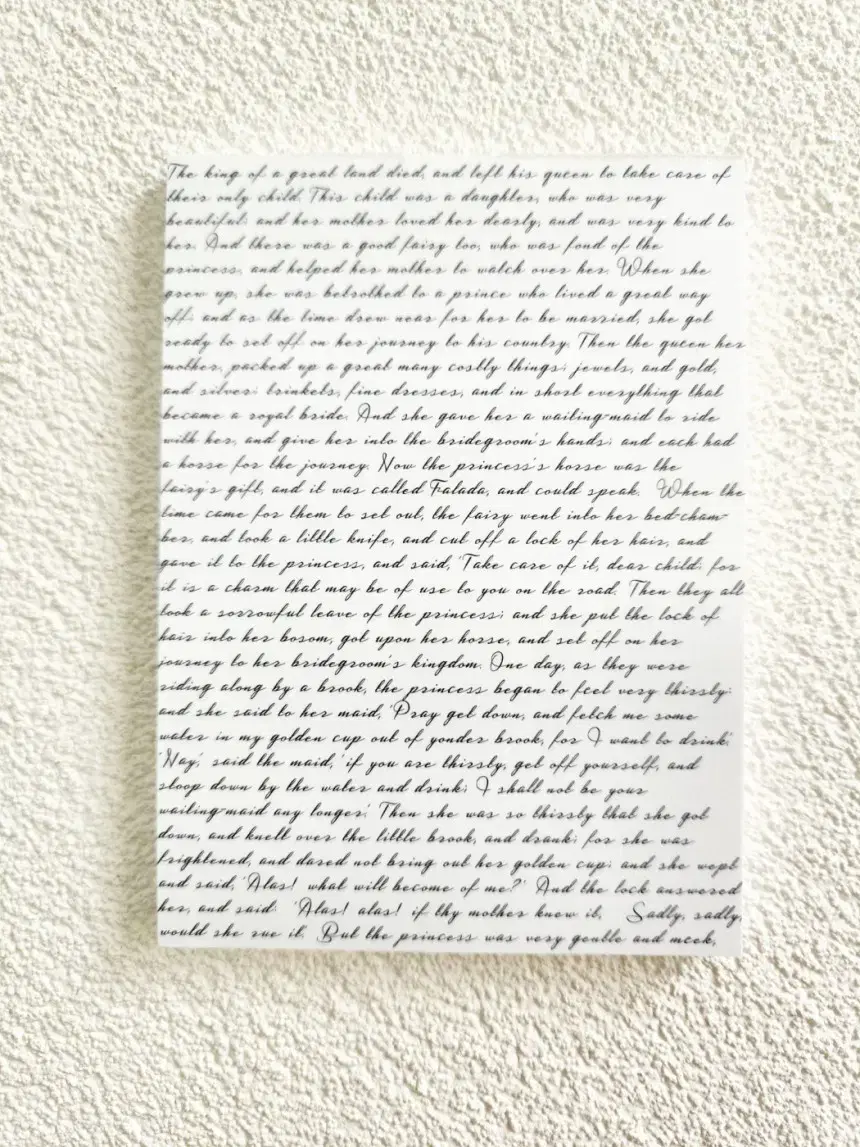 The king of a great land died, and left his queen to take care of
their only child. This child was a daughter, who was very
beautiful; and her mother loved her dearly, and was very kind to
her. And there was a good fairy too, who was fond of the
princess, and helped her mother to watch over her. When she
grew up, she was betrothed to a prince who lived a great way
off; and as the time drew near for her to be married, she got
ready to set off on her journey to his country. Then the queen her
mother, packed up a great many costly things; jewels, and gold,
and silver; trinkets, fine dresses, and in short everything that
became a royal bride. And she gave her a waiting-maid to ride
with her, and give her into the bridegroom's hands; and each had
a horse for the journey. Now the princess's horse was the
fairy's gift, and it was called Falada, and could speak. When the
time came for them to set out, the fairy went into her bed-cham-
ber, and took a little knife, and cut off a lock of her hair, and
gave it to the princess, and said, 'Take care of it, dear child; for
it is a charm that may be of use to you on the road.' Then they all
took a sorrowful leave of the princess; and she put the lock of
hair into her bosom, got upon her horse, and set off on her
journey to her bridegroom's kingdom. One day, as they were
riding along by a brook, the princess began to feel very thirsty:
and she said to her maid, 'Pray get down, and fetch me some
water in my golden cup out of yonder brook, for I want to drink.'
'Nay,' said the maid, 'if you are thirsty, get off yourself, and
stoop down by the water and drink; I shall not be your
waiting-maid any longer.' Then she was so thirsty that she got
down, and knelt over the little brook, and drank; for she was
frightened, and dared not bring out her golden cup; and she wept
and said, 'Alas! what will become of me?' And the lock answered
her, and said: 'Alas! alas! if thy mother knew it, Sadly, sadly,
would she rue it.' But the princess was very gentle and meek,